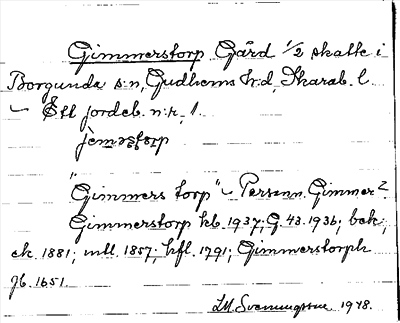 Gimmerstorp Gård 1/2 skatte i
Borgunda s:n, Gudhems h:d, Skarab. l.
~ Ett jordeb. n:r 1.
"Gimmers torp" ~ Personn. Gimmer?
Gimmerstorp kb. 1937; G. 43. 1936; bek.,
ek. 1881; mtl. 1857; hfl. 1791; Gimmerstorph
jb. 1651.
1948.